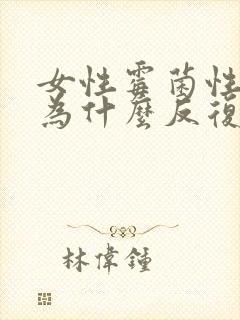 女性霉菌性
為什麼反復
林偉鐘